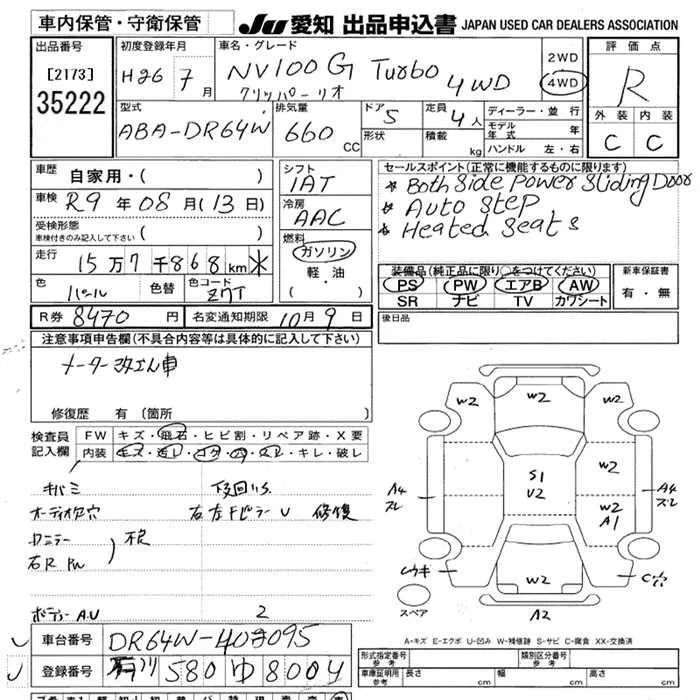 車内保管・守衛保管
JU 愛知 出品申込書 JAPAN USED CAR DEALERS ASSOCIATION
出品番号
[2173]
35222
初度登録年月
H26 7月
車名・グレード
NV100 G Turbo 4WD
クリッパーリオ
2WD
4WD
評価点
R
外装 内装
C C
型式
ABA-DR64W
排気量
660 CC
ドア
5
形状
定員
4人
積載 kg
ディーラー・並行
モデル年式 年
ハンドル 左・右
車歴
自家用・( )
車検
R9年08月(13日)
受検形態
車検付きのみ記入して下さい ( )
走行
15万7千868km *
色
パール
色替
色コード
Z7T
シフト
1AT
冷房
AAC
燃料
ガソリン
軽・油
( )
セールスポイント(正常に機能するものに限ります)
* Both Side Power Sliding Door
* Auto Step
* Heated Seats
装備品(純正品に限り○をつけてください)
PS PW エアB AW
SR ナビ TV カワシート
新車保証書
有・無
R券 8470円
名変通知期限 10月9日
後日品
注意事項申告欄(不具合内容等は具体的に記入して下さい)
修復歴 有(箇所
検査員記入欄
FW キズ・飛石・ヒビ割・リペア跡・X要
内装 キズ・汚レ・コゲ・穴・スレ・キレ・破レ
キバミ
オーディオ欠穴
右左Fピラー U 修復
右R PW
ボディーA.U
2
W2 W2 W2
S1
U2
W2
W2
A1
A4
スレ
A4
スレ
W2
A2
スペア
A-キズ E-エクボ U-凹み W-補修跡 S-サビ C-腐食 XX-交換済
車台番号 DR64W-403095
登録番号 石川 580 ゆ 8004
形式指定番号
参考
類別区分番号
参考
車庫証明用
参考
長さ cm 幅 cm 高さ cm